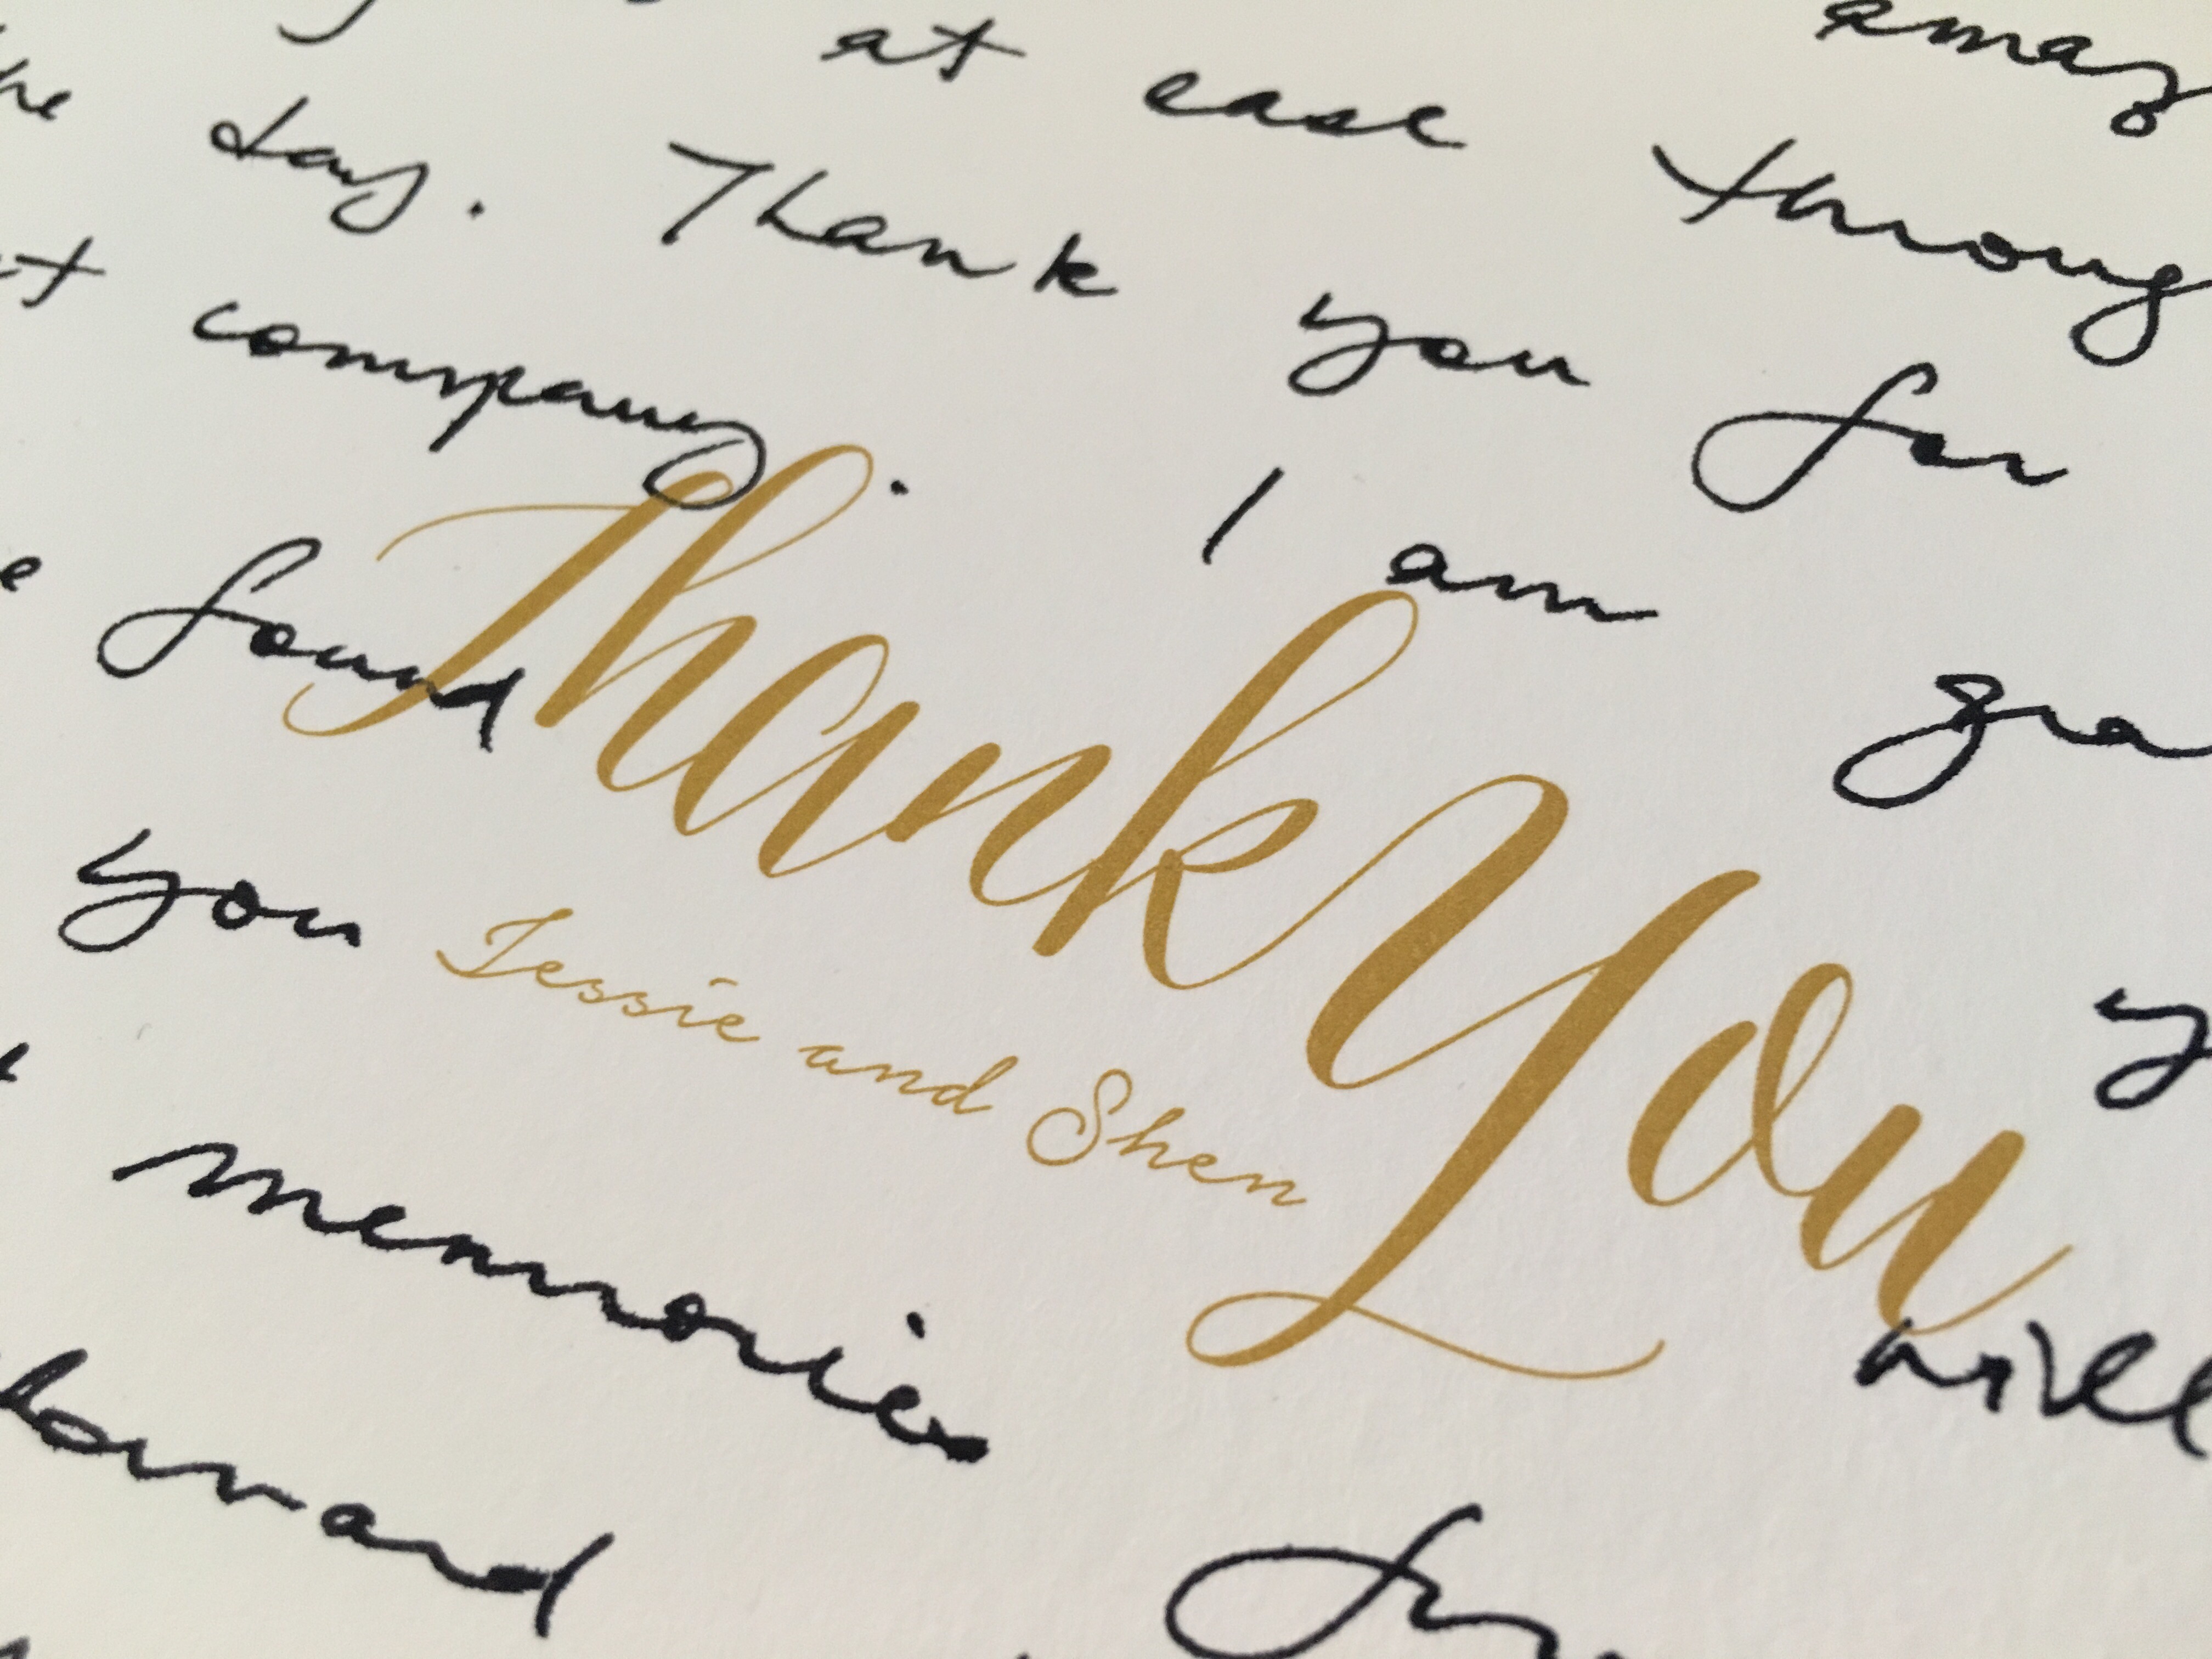 amaz
at ease throug
he day. Thank you for
t company. I am gra
e found y
Thank You
Jessie and Shen
you will
memories